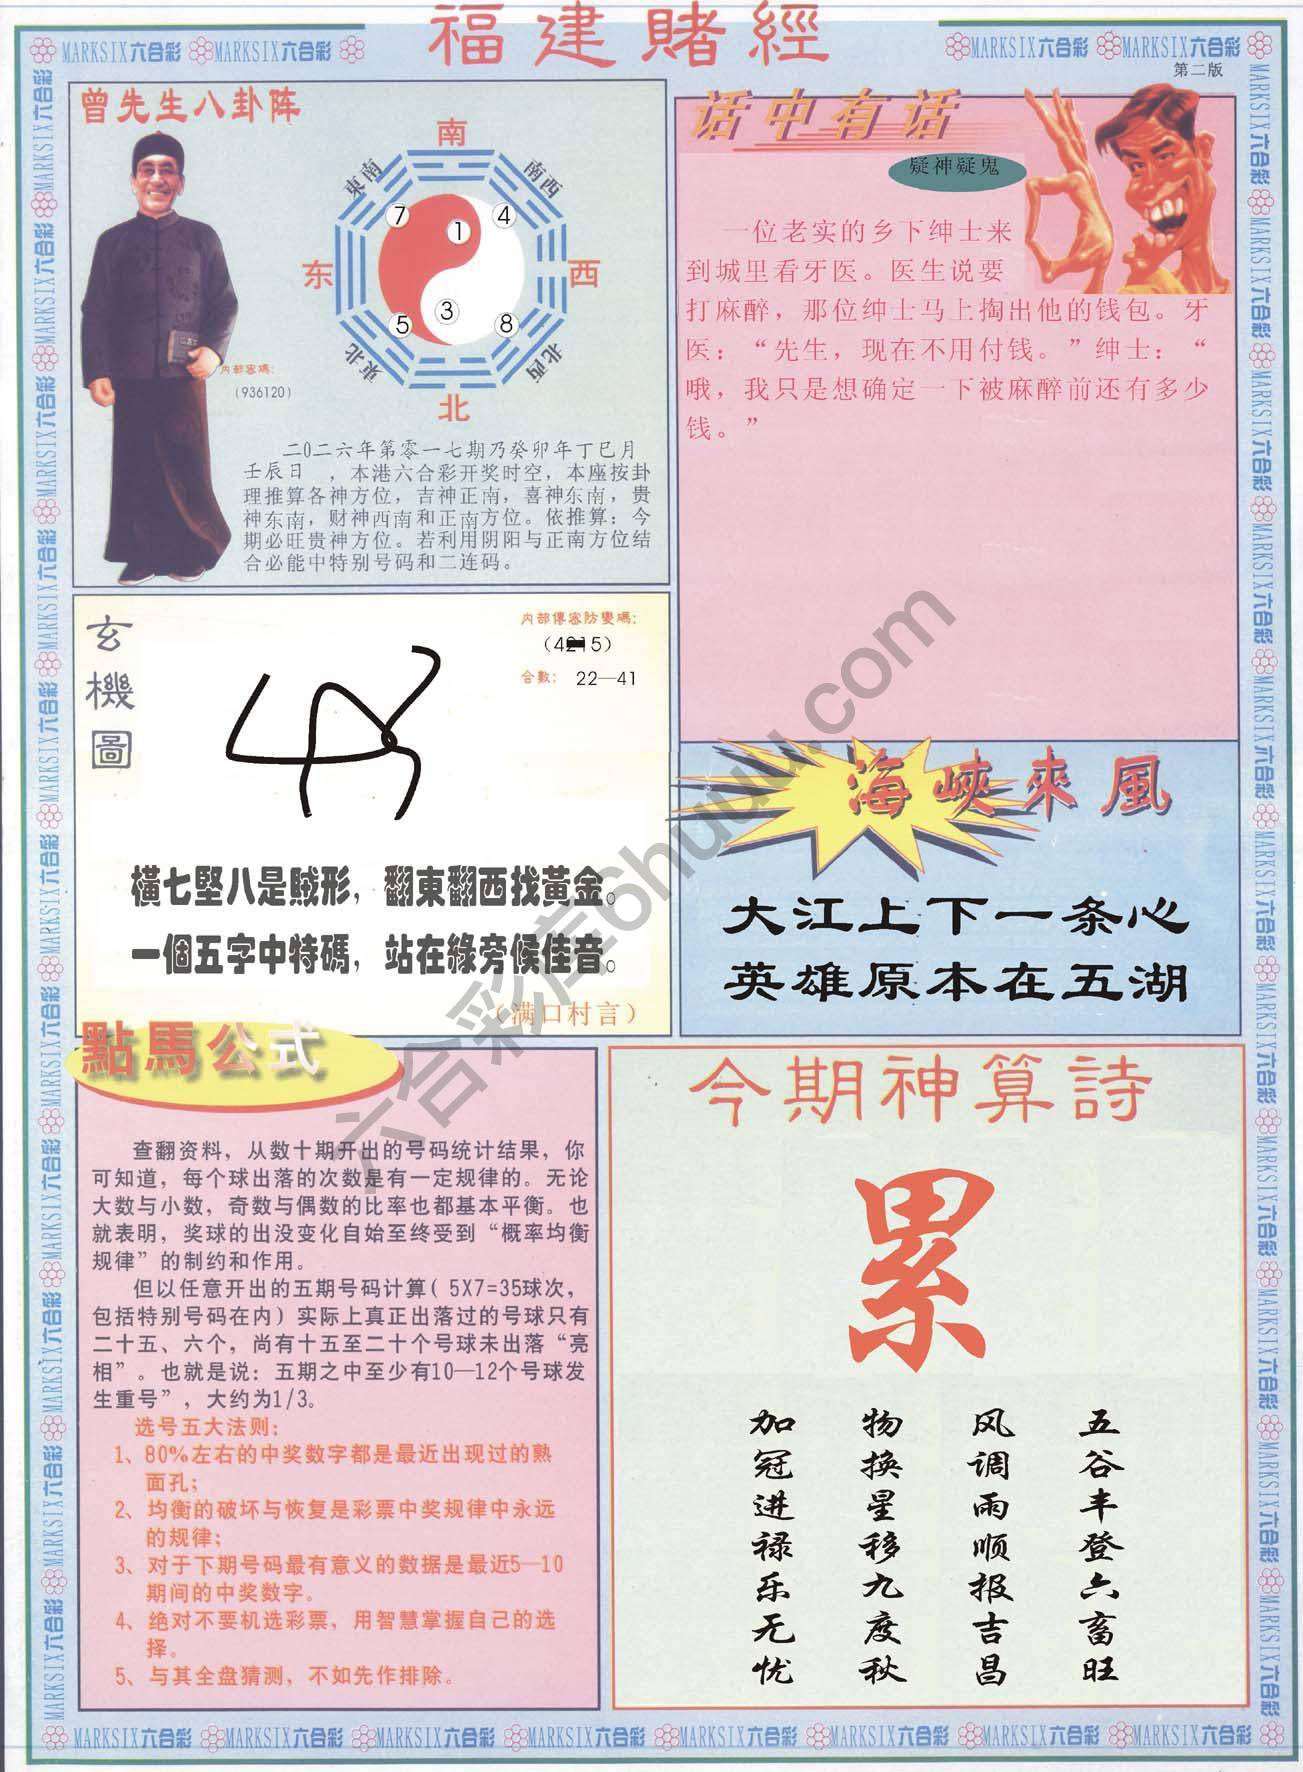 福建賭經
MARKSIX六合彩 MARKSIX六合彩
MARKSIX六合彩 MARKSIX六合彩
第二版
曾先生八卦阵
南
東南
南西
7
1
4
东
西
5
3
8
東北
北西
北
内部密碼:
(936120)
二0二六年第零一七期乃癸卯年丁巳月
壬辰日 ,本港六合彩开奖时空,本座按卦
理推算各神方位,吉神正南,喜神东南,贵
神东南,财神西南和正南方位。依推算:今
期必旺贵神方位。若利用阴阳与正南方位结
合必能中特别号码和二连码。
话中有话
疑神疑鬼
一位老实的乡下绅士来
到城里看牙医。医生说要
打麻醉,那位绅士马上掏出他的钱包。牙
医:“先生,现在不用付钱。”绅士:“
哦,我只是想确定一下被麻醉前还有多少
钱。”
玄機圖
内部傳密防變碼:
(4215)
合數: 22—41
橫七堅八是賊形,翻東翻西找黃金。
一個五字中特碼,站在綠旁候佳音。
(满口村言)
海峽來風
大江上下一条心
英雄原本在五湖
點馬公式
查翻资料,从数十期开出的号码统计结果,你
可知道,每个球出落的次数是有一定规律的。无论
大数与小数,奇数与偶数的比率也都基本平衡。也
就表明,奖球的出没变化自始至终受到“概率均衡
规律”的制约和作用。
但以任意开出的五期号码计算( 5X7=35球次,
包括特别号码在内)实际上真正出落过的号球只有
二十五、六个,尚有十五至二十个号球未出落“亮
相”。也就是说:五期之中至少有10—12个号球发
生重号”,大约为1/3。
选号五大法则:
1、80%左右的中奖数字都是最近出现过的熟
面孔;
2、均衡的破坏与恢复是彩票中奖规律中永远
的规律;
3、对于下期号码最有意义的数据是最近5—10
期间的中奖数字。
4、绝对不要机选彩票,用智慧掌握自己的选
择。
5、与其全盘猜测,不如先作排除。
今期神算詩
累
五谷丰登六畜旺
风调雨顺报吉昌
物换星移九度秋
加冠进禄乐无忧
MARKSIX六合彩 MARKSIX六合彩 MARKSIX六合彩 MARKSIX六合彩 MARKSIX六合彩 MARKSIX六合彩 MARKSIX六合彩 MARKSIX六合彩
六合彩库6huuu.com